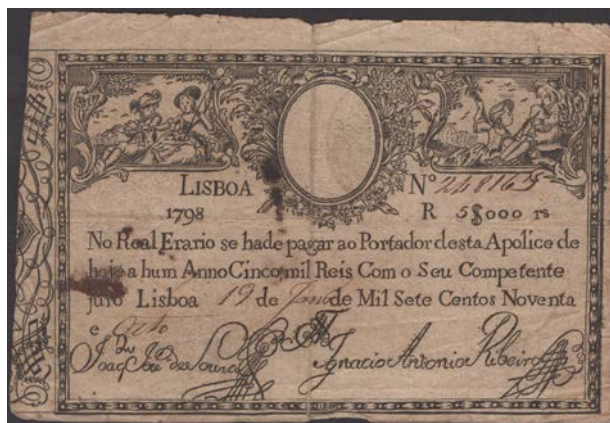 LISBOA Nº 248165
1798 R 5$000 rs
No Real Erario se hade pagar ao Portador desta Apolice de
hoje a hum Anno Cinco mil Reis Com o Seu Competente
juro Lisboa 19 de de Mil Sete Centos Noventa
e Oito
Ignacio Antonio Ribeiro